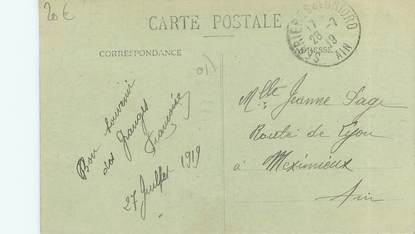 20€
CARTE POSTALE
CORRESPONDANCE
ADRESSE
28 -7
19
AIN
Bon souvenir
des Granges
27 Juillet 1919
Mlle Jeanne Sage
Route de Lyon
à Meximieux
Ain